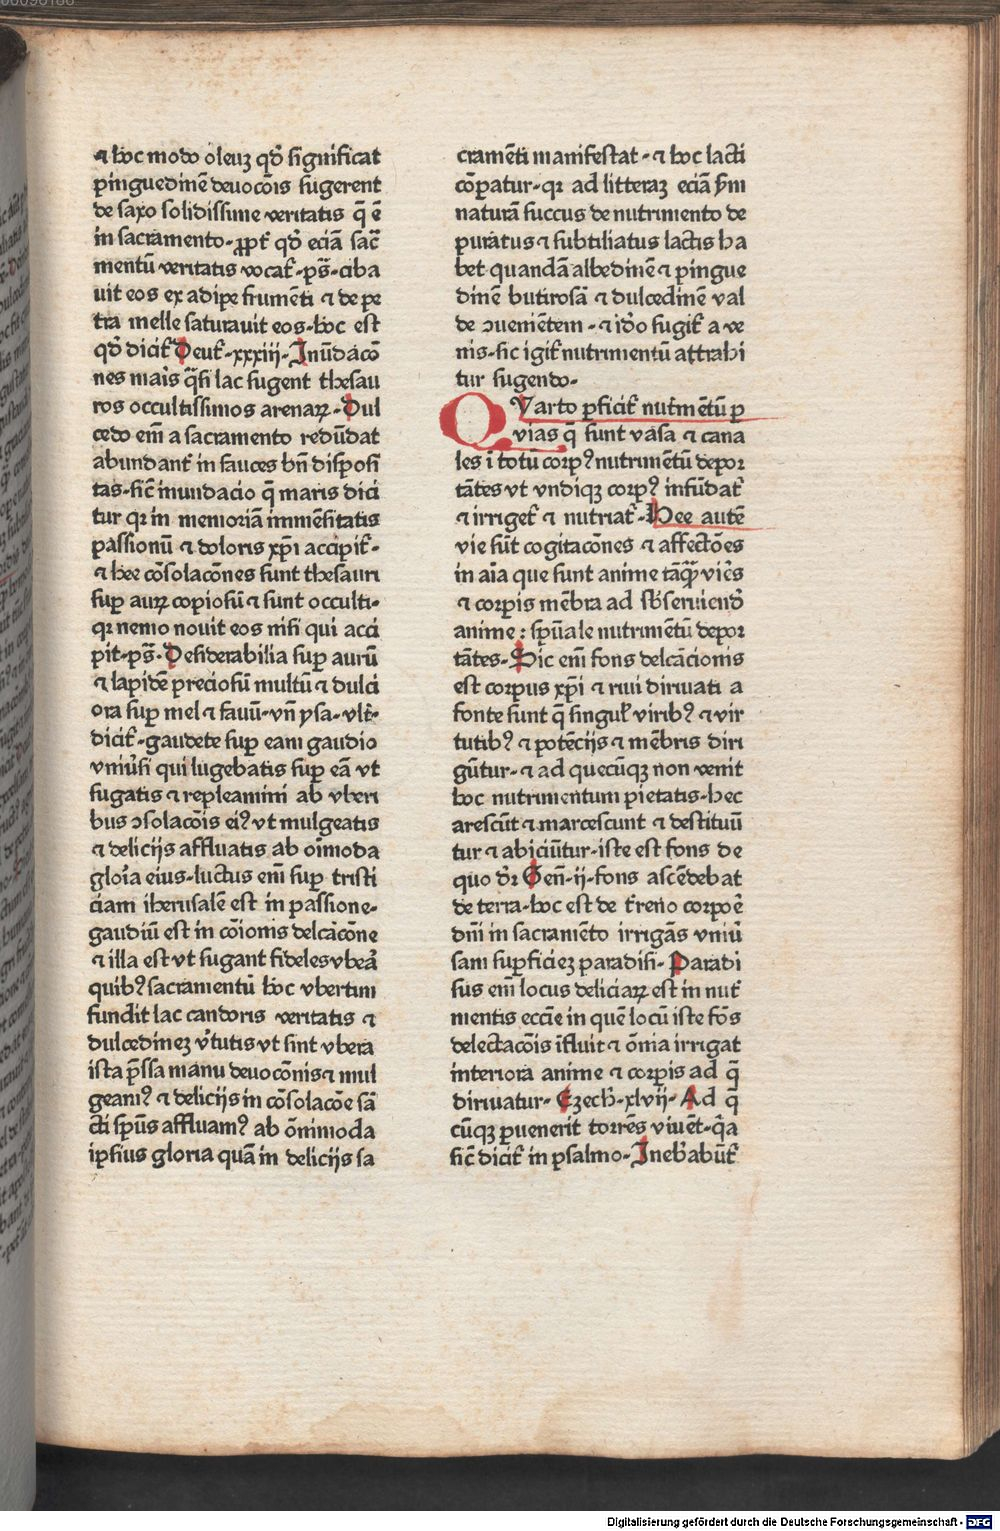 ⁊ hoc modo oleuz qđ significat
pinguedinē deuocōis sugerent
de saxo solidissime veritatis q̄ ē
in sacramento-ꝓpt̄ qđ eciā sac̄
mentū veritatis vocat̄-ps̄-ciba
uit eos ex adipe frumēti ⁊ de pe
tra melle saturauit eos-hoc est
qđ dicit̄ Deut̄-xxxiii-Inūdacō
nes maīs q̄si lac sugent thesau
ros occultissimos arenaꝝ-Dul
cedo em̄ a sacramento redūdat
abundant̄ in fauces bn̄ disposi
tas-sic̄ inundacio q̄ maris dici
tur qꝛ in memoriā immēsitatis
passionū ⁊ doloris xp̄i accipit̄-
⁊ hee cōsolacōnes sunt thesauri
suꝑ auꝝ copiosū ⁊ sunt occulti-
qꝛ nemo nouit eos nisi qui acci
pit-ps̄-Desiderabilia suꝑ aurū
⁊ lapidē preciosū multū ⁊ dulci
ora suꝑ mel ⁊ fauū-vn̄ ysa-vlt̄-
dicit̄-gaudete suꝑ eam gaudio
vniūsi qui lugebatis suꝑ eā vt
sugatis ⁊ repleamini ab vberi
bus ↄsolacōis eiꝰ vt mulgeatis
⁊ delicijs affluatis ab oīmoda
gloīa eius-luctus em̄ suꝑ tristi
ciam iherusalē est in passione-
gaudiū est in cōionis delcācōne
⁊ illa est vt sugant fideles vbeā
quibꝰ sacramentū hoc vbertim
fundit lac candoris veritatis ⁊
dulcedinez v̄tutis vt sint vbera
ista p̄ssa manu deuocōnis ⁊ mul
geamꝰ ⁊ delicijs in cōsolacōe sā
cti sp̄us affluamꝰ ab ōnimoda
ipsius gloria quā in delicijs sa
cramēti manifestat-⁊ hoc lacti
cōꝑatur-qꝛ ad litteraz eciā ſm̄
naturā succus de nutrimento de
puratus ⁊ subtiliatus lactis ha
bet quandā albedinē ⁊ pingue
dinē butirosā ⁊ dulcedinē val
de ↄueniētem-⁊ iđo sugit̄ a ve
nis-sic igit̄ nutrimentū attrahi
tur sugendo-
QVarto ꝑficit̄ nut̄mētū ꝑ
vias q̄ sunt vasa ⁊ cana
les ī totū corpꝰ nutrimētū depor
tātes vt vndiqꝫ corpꝰ infūdat̄
⁊ irriget̄ ⁊ nutriat̄-Hee autē
vie sūt cogitacōnes ⁊ affectōes
in aīa que sunt anime tāq̄ vīes
⁊ corpis mēbra ad sb̄seruienđo
anime: spūale nutrimētū depor
tātes-Sic em̄ fons delcācionis
est corpus xp̄i ⁊ riui diriuati a
fonte sunt q̄ singul̄ viribꝰ ⁊ vir
tutibꝰ ⁊ potēcijs ⁊ mēbris diri
gūtur-⁊ ad quecūqꝫ non venit
hoc nutrimentum pietatis-hec
arescūt ⁊ marcescunt ⁊ destituū
tur ⁊ abiciūtur-iste est fons de
quo đꝛ Gen̄-ii-fons ascēdebat
de terra-hoc est de t̄reno corpoē
dn̄i in sacramēto irrigās vniū
sam suꝑficiez paradisi-Paradi
sus em̄ locus deliciaꝝ est in nut̄
mentis eccīe in quē locū iste fōs
delectacōis īfluit ⁊ ōnia irrigat
interiora anime ⁊ corꝑis ad q̄
diriuatur-Ezech̄-xlvii-Ad q̄
cūqꝫ ꝑuenerit torrēs viuēt-q̄a
sic̄ dicit̄ in psalmo-Ineb̄abūt̄
Digitalisierung gefördert durch die Deutsche Forschungsgemeinschaft - DFG